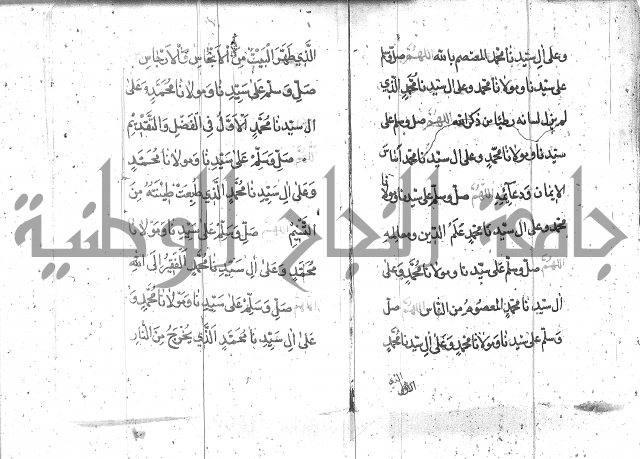 وعلى ال سيدنا محمد المعتصم بالله اللهم صل وسلم
على سيدنا ومولانا محمد وعلى ال سيدنا محمد الذي
لم يزل لسانه رطبا من ذكر الله اللهم صل وسلم على
سيدنا ومولانا محمد وعلى ال سيدنا محمد اساس
الإيمان ودعائمه اللهم صل وسلم على سيدنا ومولانا
محمد وعلى ال سيدنا محمد علم الدين ومعالمه
اللهم صل وسلم على سيدنا ومولانا محمد وعلى
ال سيدنا محمد المعصوم من الناس اللهم صل
وسلم على سيدنا ومولانا محمد وعلى ال سيدنا محمد
الذي طهر البيت من الانجاس والارجاس
صل وسلم على سيدنا ومولانا محمد وعلى
ال سيدنا محمد الاول في الفضل والتقديم
اللهم صل وسلم على سيدنا ومولانا محمد
وعلى ال سيدنا محمد الذي طبعت طينته من
اللهم صل وسلم على سيدنا ومولانا
محمد وعلى ال سيدنا محمد الفقير الى الله
اللهم صل وسلم على سيدنا ومولانا محمد و
على ال سيدنا محمد الذي يخرج من النار
جامعة النجاح الوطنية